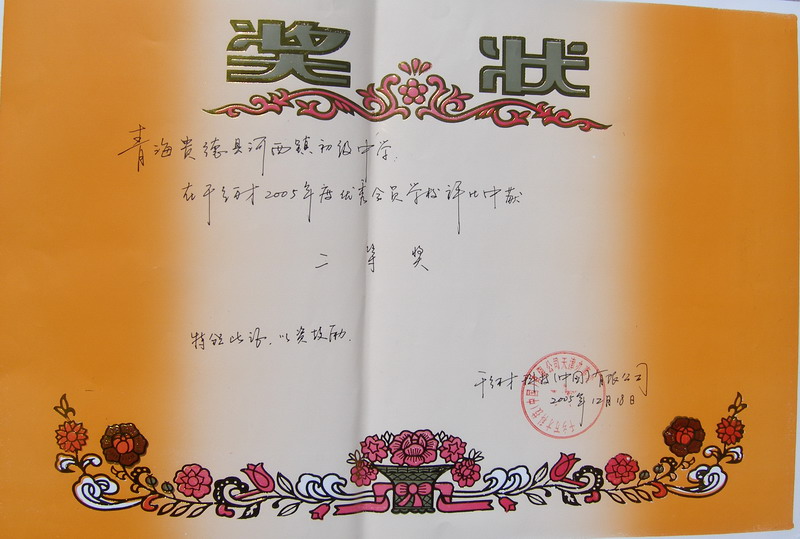 奖 状
青海贵德县河西镇初级中学:
在千乡万才2005年度优秀会员学校评比中获
二 等 奖
特颁此证,以资鼓励.
千乡万才科技(中国)有限公司
2005年12月18日